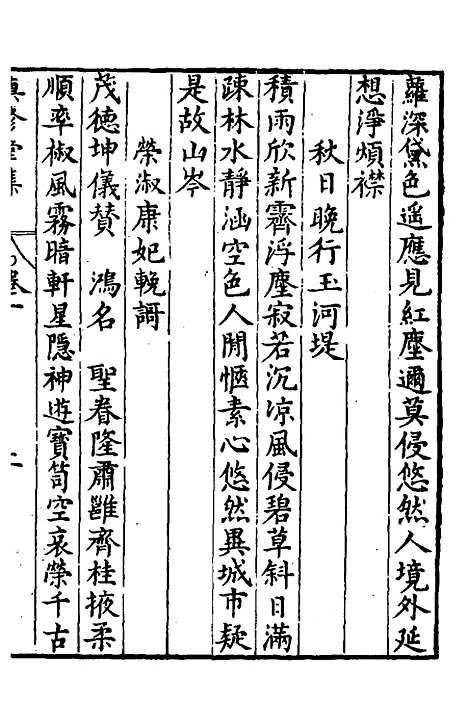 蘿深黛色遥應見紅塵邇莫侵悠然人境外延
想淨煩襟
秋日晚行玉河堤
積雨欣新霽浮塵寂若沉凉風侵碧草斜日滿
疎林水靜涵空色人閒愜素心悠然異城市疑
是故山岑
榮淑康妃輓謌
茂德坤儀賛 鴻名 聖眷隆肅雝齊桂掖柔
順率椒風霧暗軒星隱神遊寶笥空哀榮千古
堂集 卷一